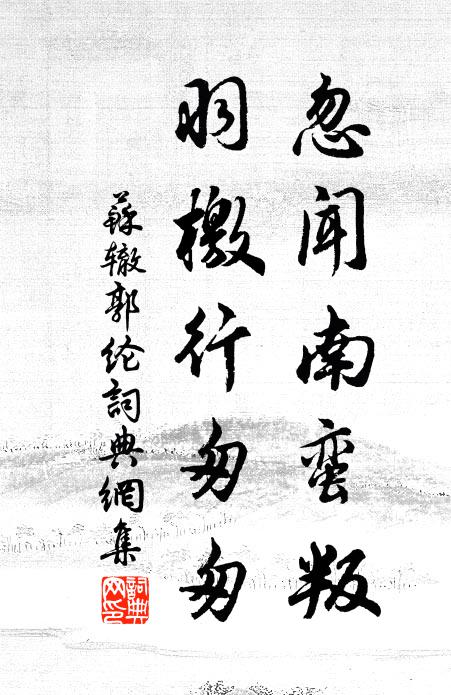 忽闻南蛮叛
羽檄行匆匆
蘇辙郭纶詞典網集
詞典网印